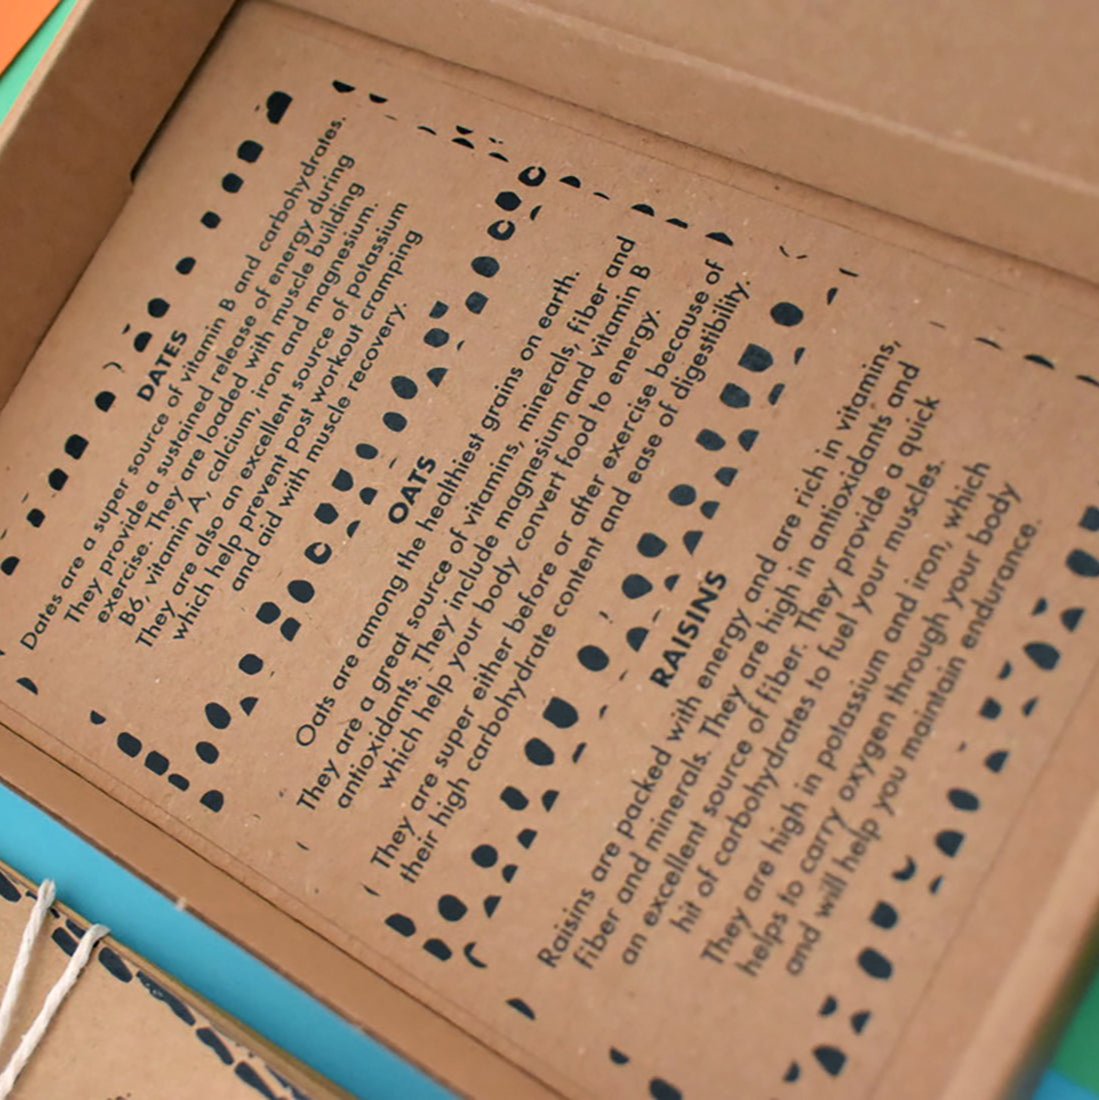 DATES
Dates are a super source of vitamin B and carbohydrates.
They provide a sustained release of energy during
exercise. They are loaded with muscle building
B6, vitamin A, calcium, iron and magnesium.
They are also an excellent source of potassium
which help prevent post workout cramping
and aid with muscle recovery.
OATS
Oats are among the healthiest grains on earth.
They are a great source of vitamins, minerals, fiber and
antioxidants. They include magnesium and vitamin B
which help your body convert food to energy.
They are super either before or after exercise because of
their high carbohydrate content and ease of digestibility.
RAISINS
Raisins are packed with energy and are rich in vitamins,
fiber and minerals. They are high in antioxidants and
an excellent source of fiber. They provide a quick
hit of carbohydrates to fuel your muscles.
They are high in potassium and iron, which
helps to carry oxygen through your body
and will help you maintain endurance.